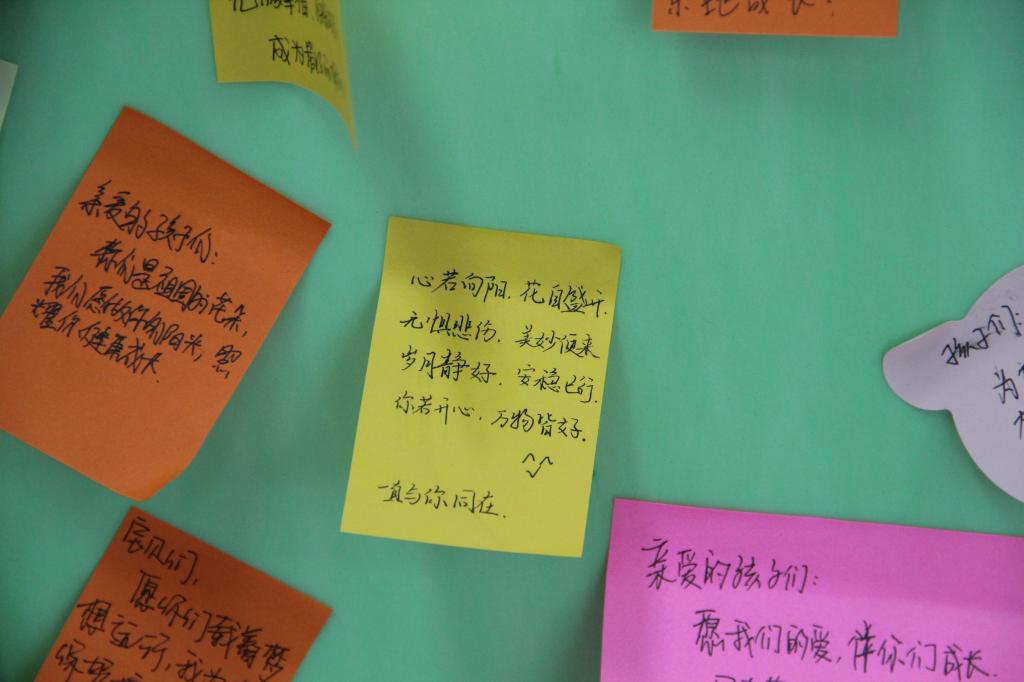 成为最
亲爱的孩子们:
你们是祖国的花朵,
我们愿做你的阳光,照
耀你健康成长.
心若向阳.花自盛开.
无惧悲伤.美妙便来
岁月静好.安稳已行.
你若开心.万物皆好.
一直与你同在.
孩子们:
为
宝贝们,
愿你们载着梦
想远行,我为
亲爱的孩子们:
愿我们的爱,伴你们成长.